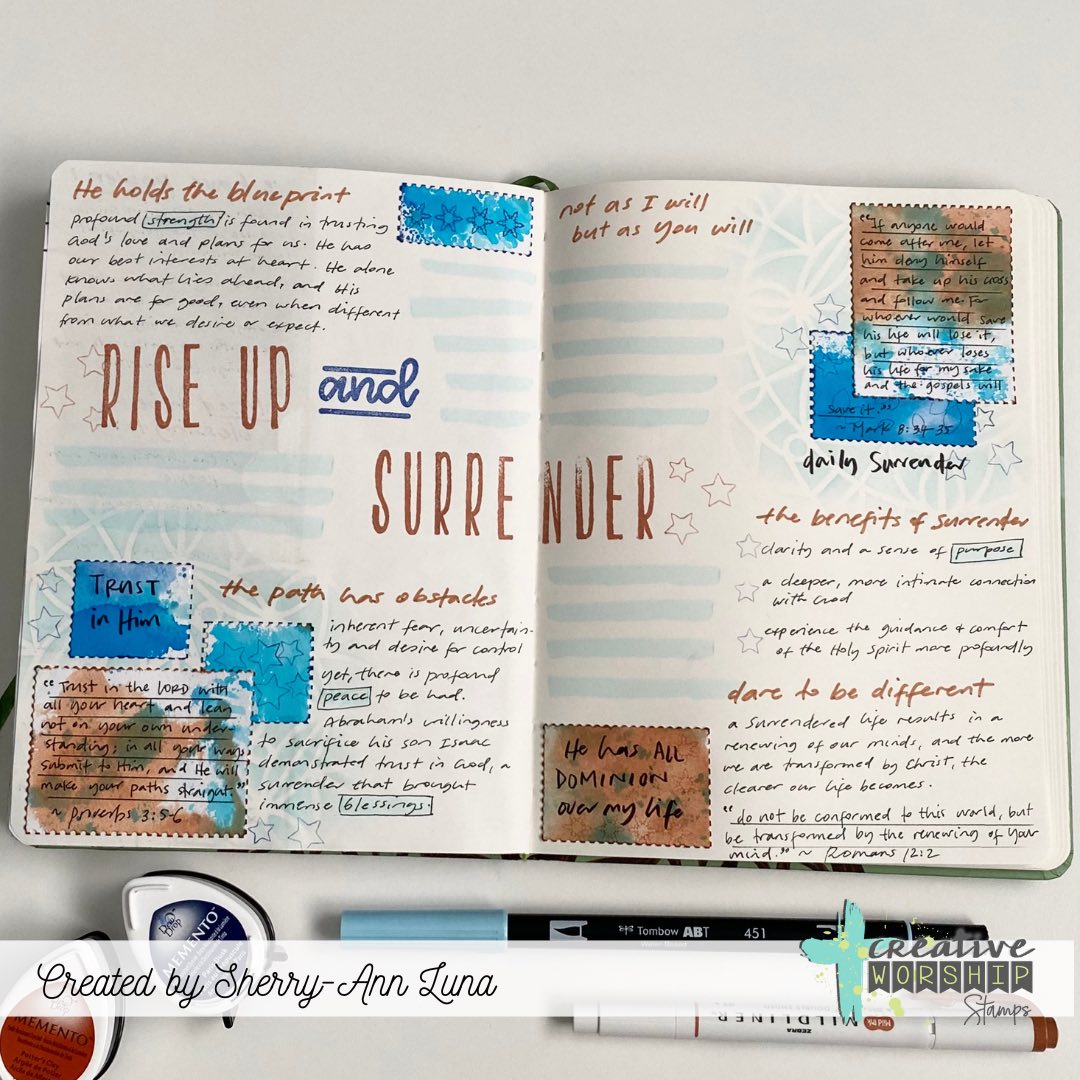 He holds the blueprint
profound strength is found in trusting
God's love and plans for us. He has
our best interests at heart. He alone
knows what lies ahead, and His
plans are for good, even when different
from what we desire or expect.
RISE UP and
SURRENDER
TRUST
in Him
"Trust in the LORD with
all your heart and lean
not on your own under-
standing; in all your ways
submit to Him, and He will
make your paths straight"
~ Proverbs 3:5-6
the path has obstacles
inherent fear, uncertain-
ty and desire for control
yet, there is profound
peace to be had.
Abraham's willingness
to sacrifice his son Isaac
demonstrated trust in God, a
surrender that brought
immense blessings.
not as I will
but as you will
"If anyone would
come after me, let
him deny himself
and take up his cross
and follow me. For
whoever would save
his life will lose it,
but whoever loses
his life for my sake
and the gospels will
save it."
~ Mark 8:34-35
daily Surrender
the benefits of surrender
clarity and a sense of purpose
a deeper, more intimate connection
with God
experience the guidance & comfort
of the Holy Spirit more profoundly
dare to be different
a surrendered life results in a
renewing of our minds, and the more
we are transformed by Christ, the
clearer our life becomes.
"do not be conformed to this world, but
be transformed by the renewing of your
mind." ~ Romans 12:2
He has ALL
DOMINION
over my life
Dew Drop
MEMENTO
MEMENTO
Potter's Clay
Tombow ABT 451
ZEBRA
MILDLINER
Mild Ink
Created by Sherry-Ann Luna
creative
WORSHIP
Stamps